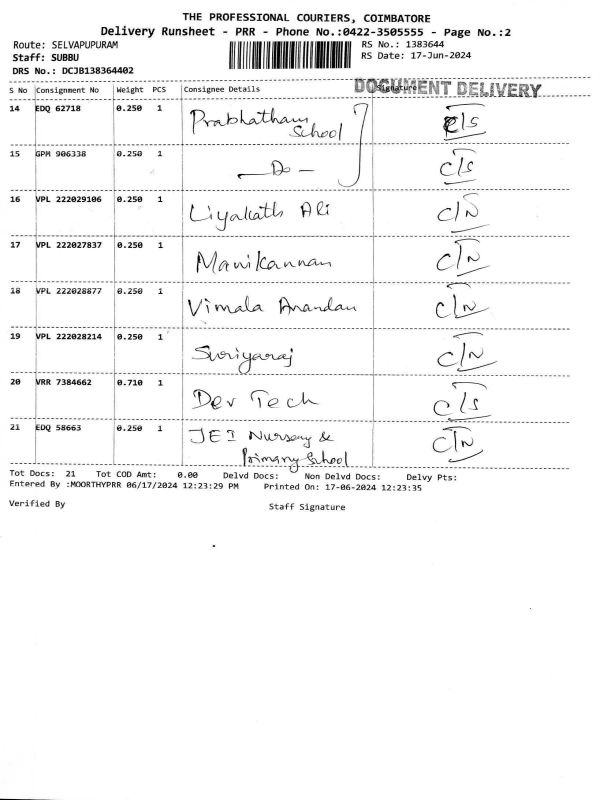 THE PROFESSIONAL COURIERS, COIMBATORE
Delivery Runsheet - PRR - Phone No.:0422-3505555 - Page No.:2
Route: SELVAPUPURAM RS No.: 1383644
Staff: SUBBU RS Date: 17-Jun-2024
DRS No.: DCJB138364402
DOCUMENT DELIVERY
S No Consignment No Weight PCS Consignee Details Signature
14 EDQ 62718 0.250 1 Prabhatham C/S
School
15 GPM 906338 0.250 1 — Do — C/S
16 VPL 222029106 0.250 1 Liyakath Ali C/N
17 VPL 222027837 0.250 1 Manikannan C/N
18 VPL 222028877 0.250 1 Vimala Anandan C/N
19 VPL 222028214 0.250 1 Suriyaraj C/N
20 VRR 7384662 0.710 1 Dev Tech C/S
21 EDQ 58663 0.250 1 JEI Nursery & C/N
Primary School
Tot Docs: 21 Tot COD Amt: 0.00 Delvd Docs: Non Delvd Docs: Delvy Pts:
Entered By :MOORTHYPRR 06/17/2024 12:23:29 PM Printed On: 17-06-2024 12:23:35
Verified By Staff Signature